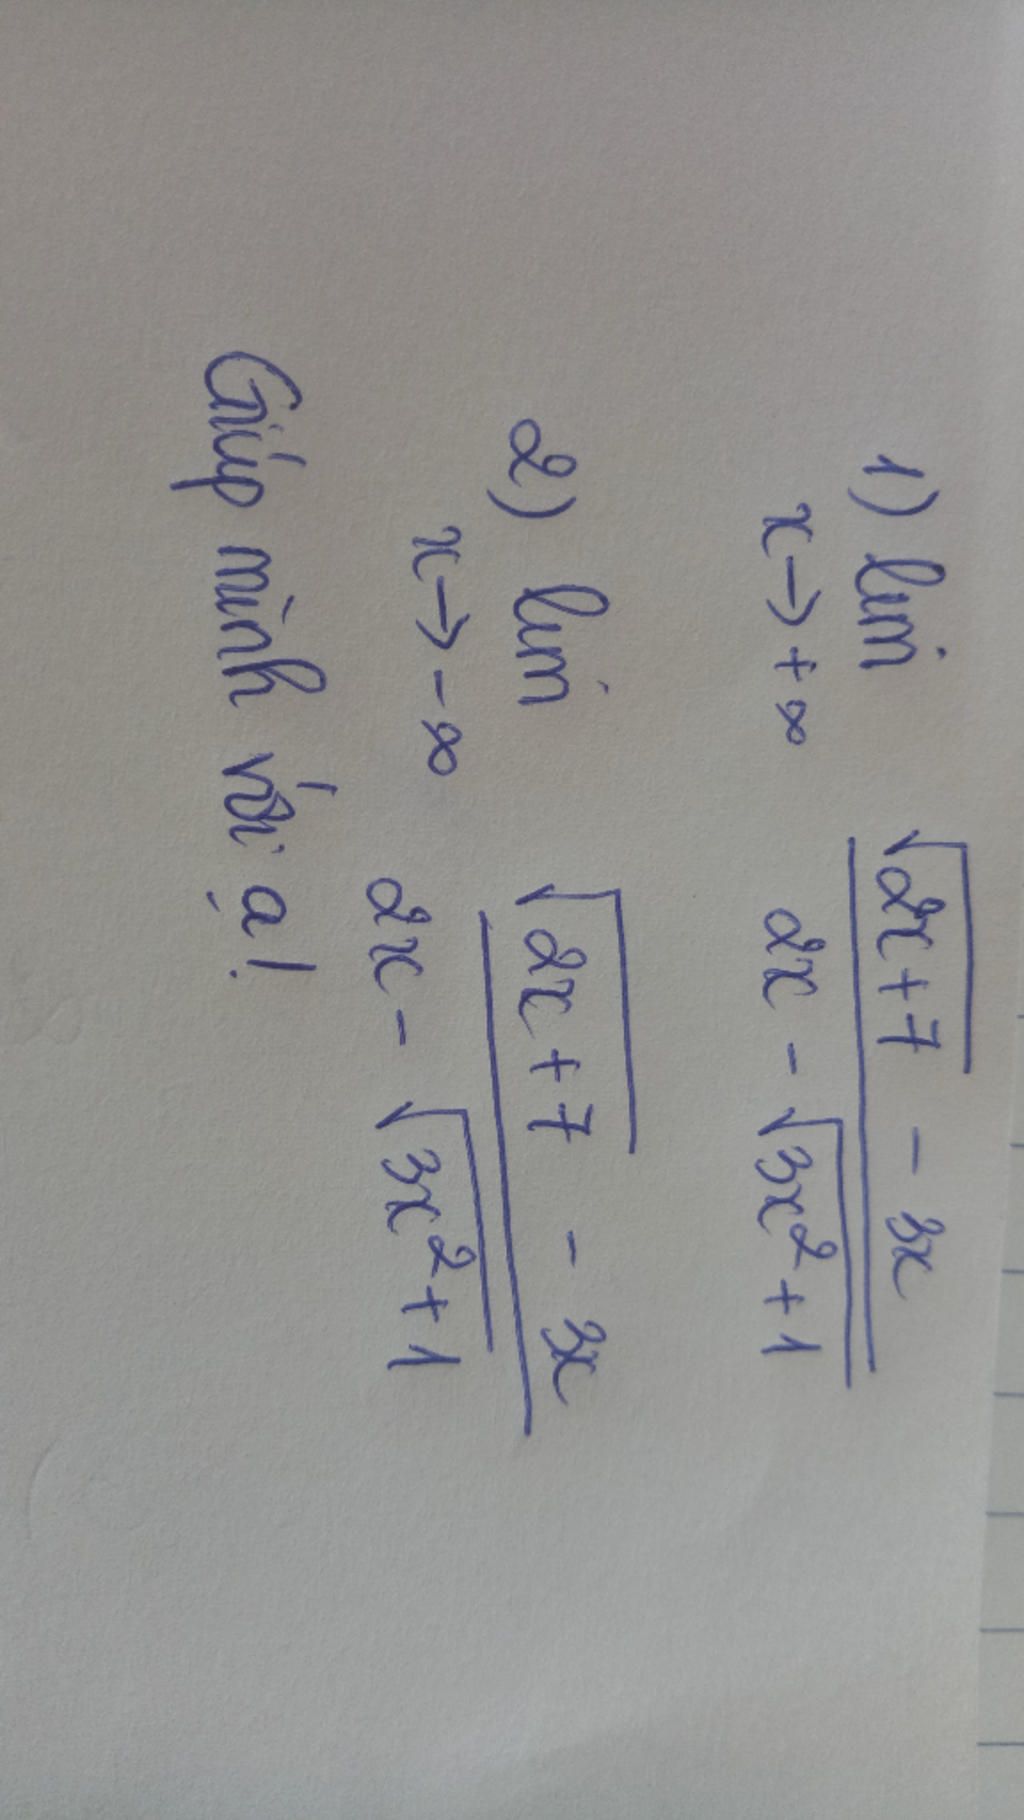 1) lim √2x+7 - 3x
x→+∞ 2x - √3x²+1
2) lim √2x+7 - 3x
x→-∞ 2x - √3x²+1
Giúp mình với ạ!